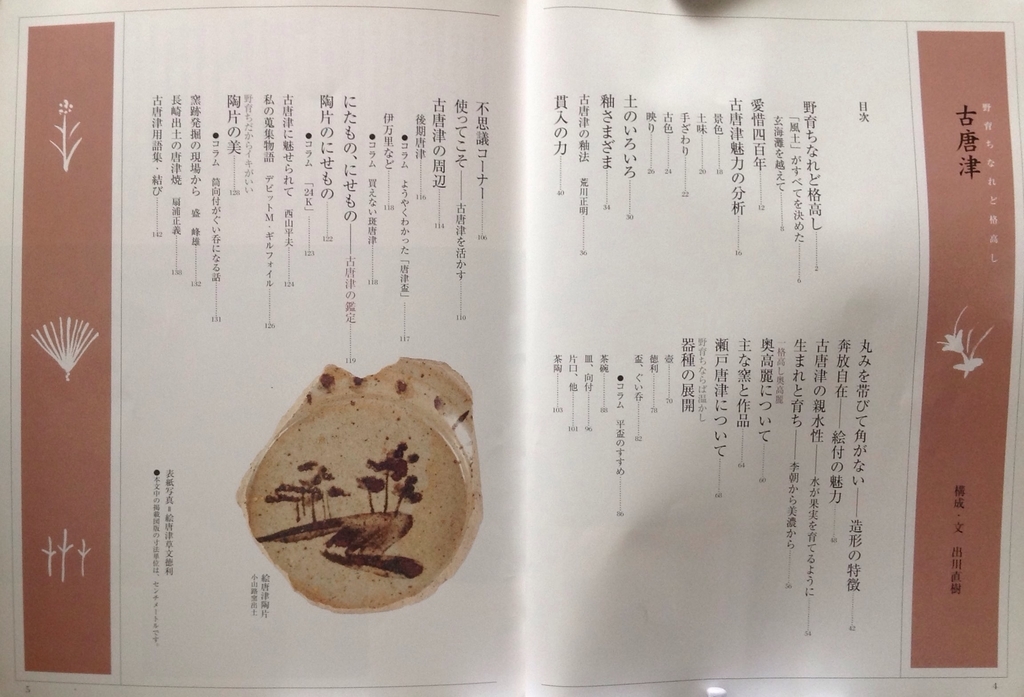 野育ちなれど格高し
古唐津
構成・文　出川直樹
目次
野育ちなれど格高し 2
「風土」がすべてを決めた 6
玄海灘を越えて 8
愛惜四百年 12
古唐津魅力の分析 16
景色 18
土味 20
手ざわり 22
古色 24
映り 26
土のいろいろ 30
釉さまざま 34
古唐津の釉法　荒川正明 36
貫入の力 40
丸みを帯びて角がない――造形の特徴 42
奔放自在――絵付の魅力 48
古唐津の親水性――水が果実を育てるように 54
生まれと育ち――李朝から美濃から 56
格高し奥高麗
奥高麗について 60
主な窯と作品 64
瀬戸唐津について 68
野育ちならば温かし
器種の展開
壺 70
徳利 78
盃、ぐい呑 82
●コラム　平盃のすすめ 86
茶碗 88
皿、向付 96
片口、他 101
茶陶 103
不思議コーナー 106
使ってこそ――古唐津を活かす 110
古唐津の周辺 114
後期唐津 116
●コラム　ようやくわかった「唐津盃」 117
伊万里など 118
●コラム　買えない斑唐津 118
にたもの、にせもの――古唐津の鑑定 119
陶片のにせもの 122
●コラム　「24K」 123
古唐津に魅せられて　西山平夫 124
私の蒐集物語　デビットM・ギルフォイル 126
野育ちだからイキがいい
陶片の美 128
●コラム　筒向付がぐい呑になる話 131
窯跡発掘の現場から　盛　峰雄 132
長崎出土の唐津焼　扇浦正義 138
古唐津用語集・結び 142
絵唐津陶片
小山路窯出土
表紙写真＝絵唐津草文徳利
●本文中の掲載図版の寸法単位は、センチメートルです。
4
5